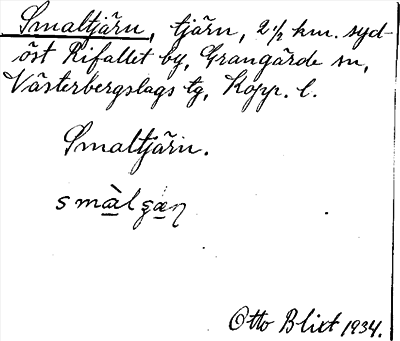 Smaltjärn, tjärn, 2½ km. syd-
öst Rifallet by, Grangärde sn,
Västerbergslags tg, Kopp. l.
Smaltjärn.
smàlʂæɳ
Otto Blixt 1934.